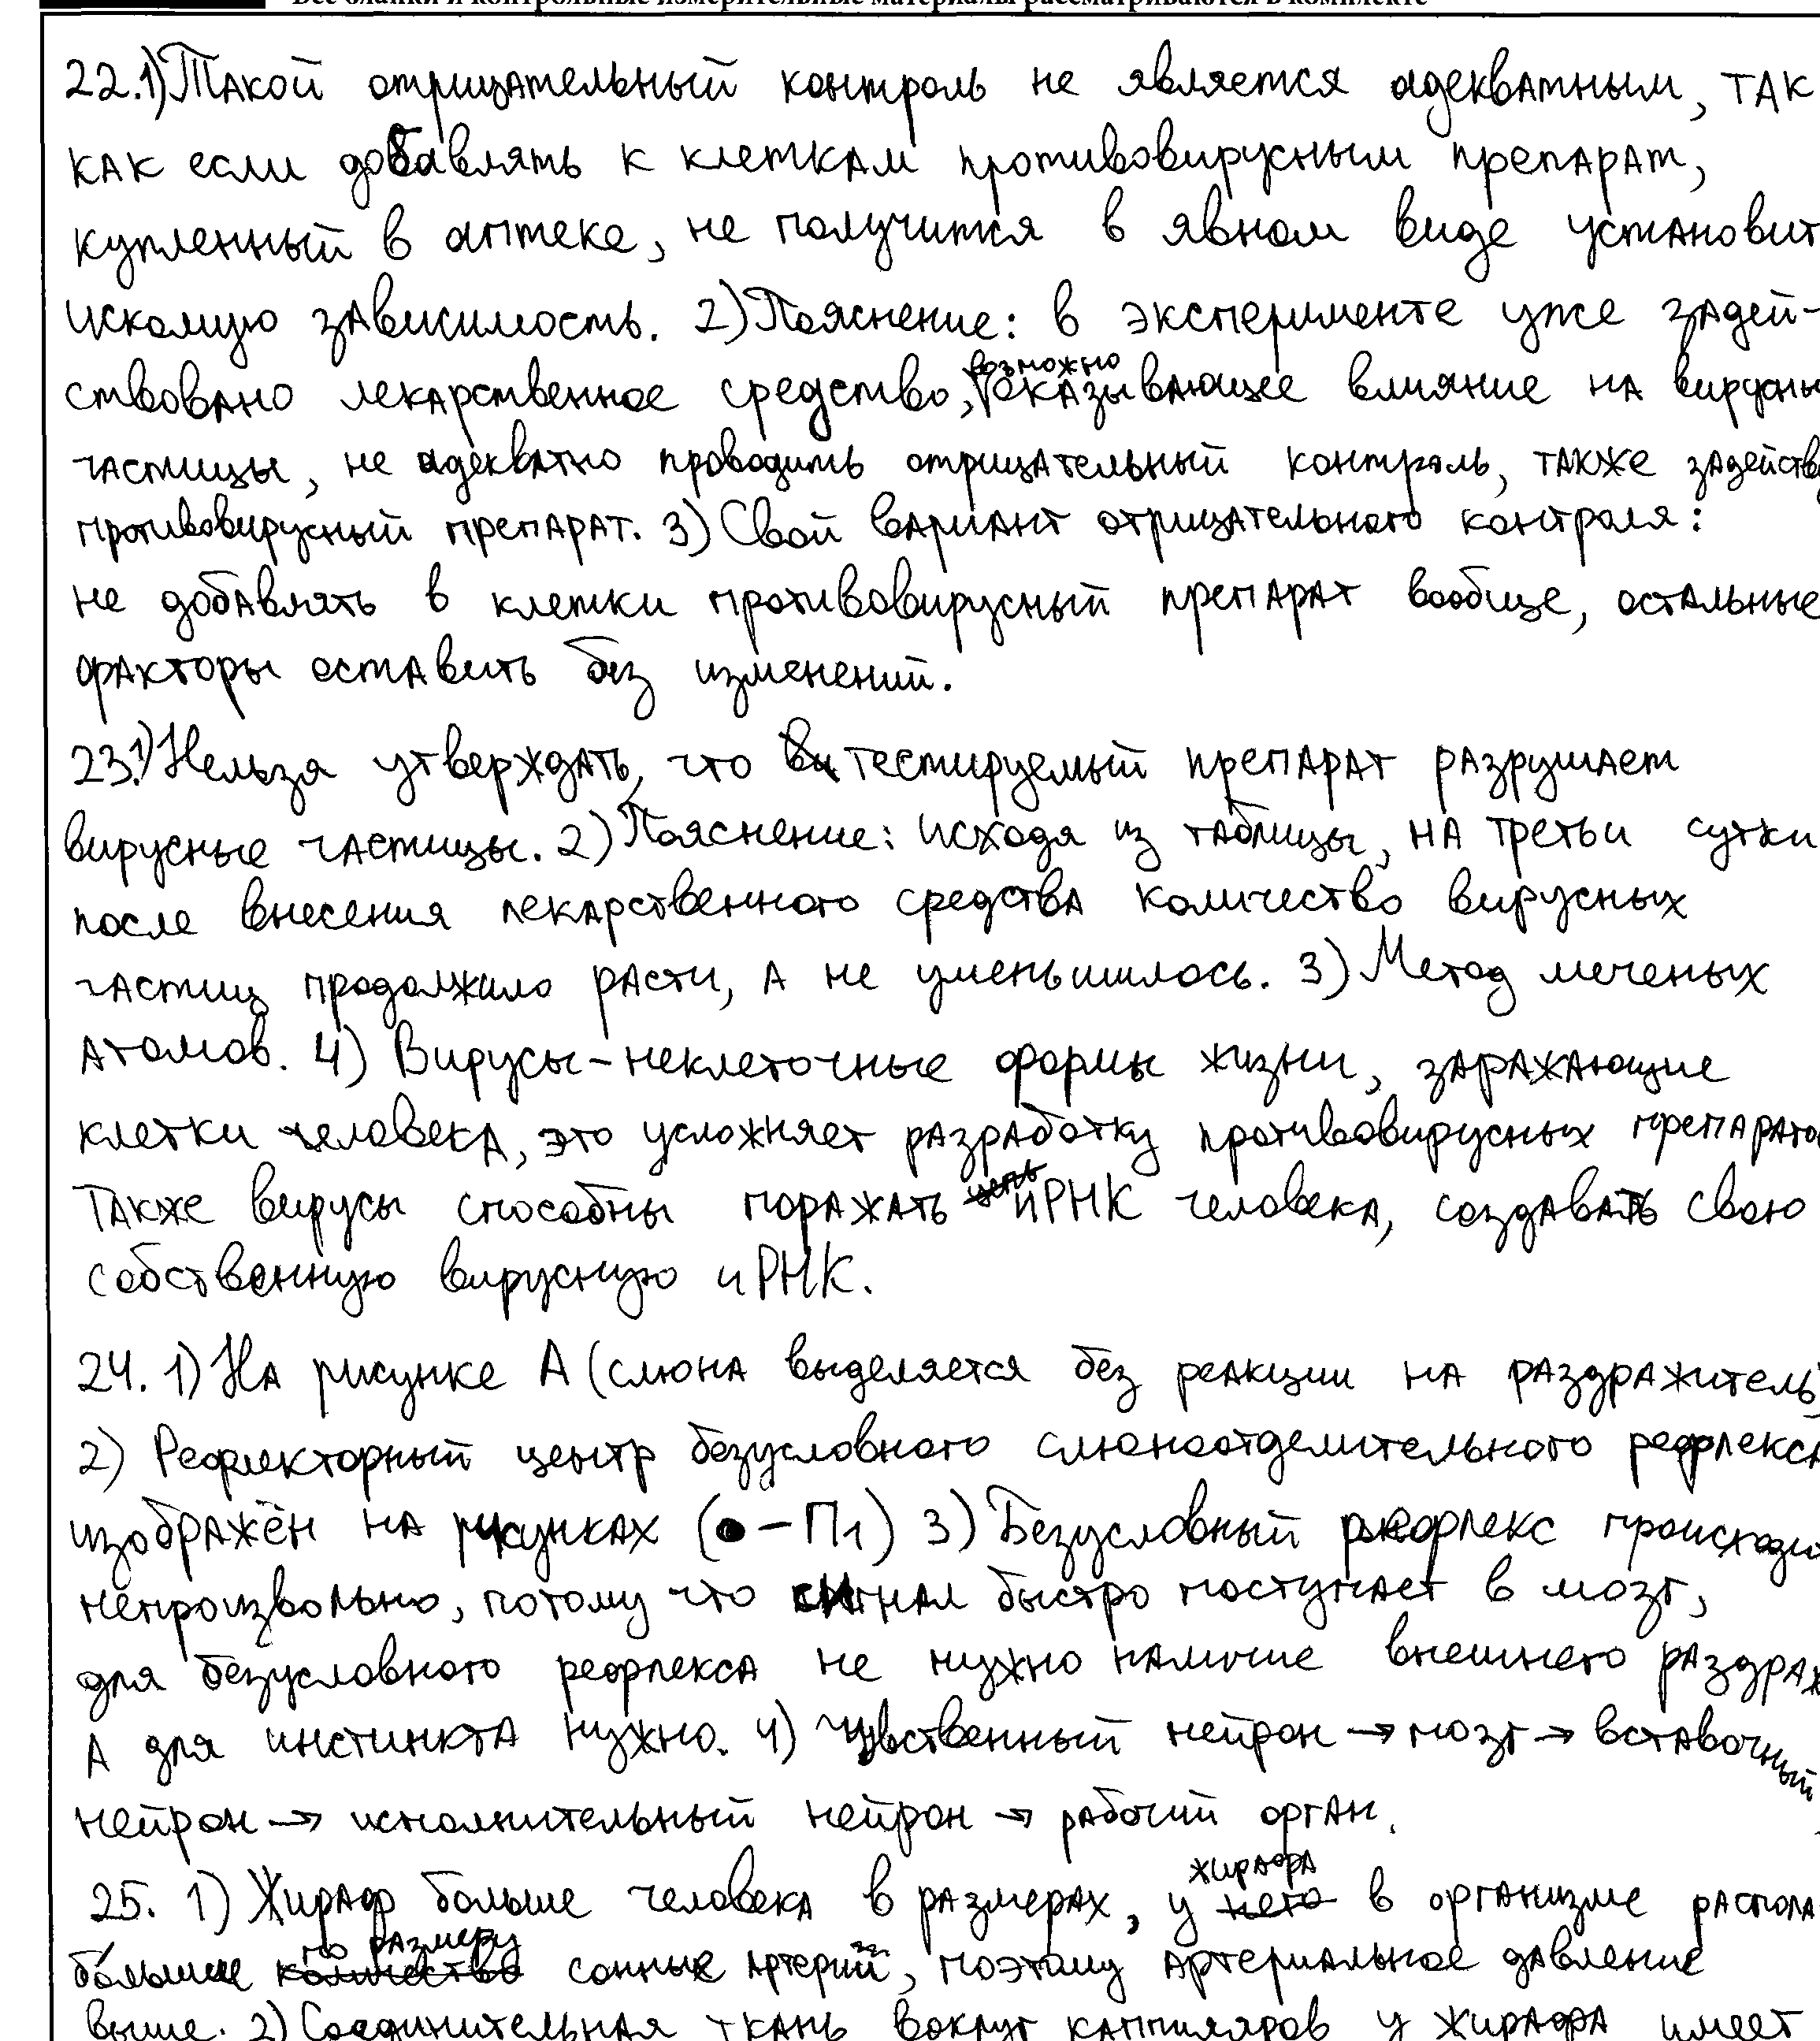 Все бланки и контрольные измерительные материалы рассматриваются в комплекте
22.1) Такой отрицательный контроль не является адекватным, так
как если добавлять к клеткам противовирусным препарат,
купленный в аптеке, не получится в явном виде установит
искомую зависимость. 2) Пояснение: в эксперименте уже задей-
ствовано лекарственное средство, возможно оказывающее влияние на вирусны
частицы, не адекватно проводить отрицательный контроль, также задейств
противовирусный препарат. 3) Свой вариант отрицательного контроля:
не добавлять в клетки противовирусный препарат вообще, остальные
факторы оставить без изменений.
23.1) Нельзя утверждать, что тестируемый препарат разрушает
вирусные частицы. 2) Пояснение: исходя из таблицы, на третьи сутки
после внесения лекарственного средства количество вирусных
частиц продолжило расти, а не уменьшилось. 3) Метод меченых
атомов. 4) Вирусы-неклеточные формы жизни, заражающие
клетки человека, это усложняет разработку противовирусных препарато
Также вирусы способны поражать иРНК человека, создавать свою
собственную вирусную иРНК.
24. 1) На рисунке А (слюна выделяется без реакции на раздражитель)
2) Рефлекторный центр безусловного слюноотделительного рефлекса
изображён на рисунках (● – П1) 3) Безусловный рефлекс происходит
непроизвольно, потому что сигнал быстро поступает в мозг,
для безусловного рефлекса не нужно наличие внешнего раздраж
А для инстинкта нужно. 4) Чувственный нейрон → мозг → вставочный
нейрон → исполнительный нейрон → рабочий орган.
25. 1) Жираф больше человека в размерах, у жирафа в организме распола
бо́льшие по размеру сонные артерии, поэтому артериальное давление
выше. 2) Соединительная ткань вокруг капилляров у жирафа имеет